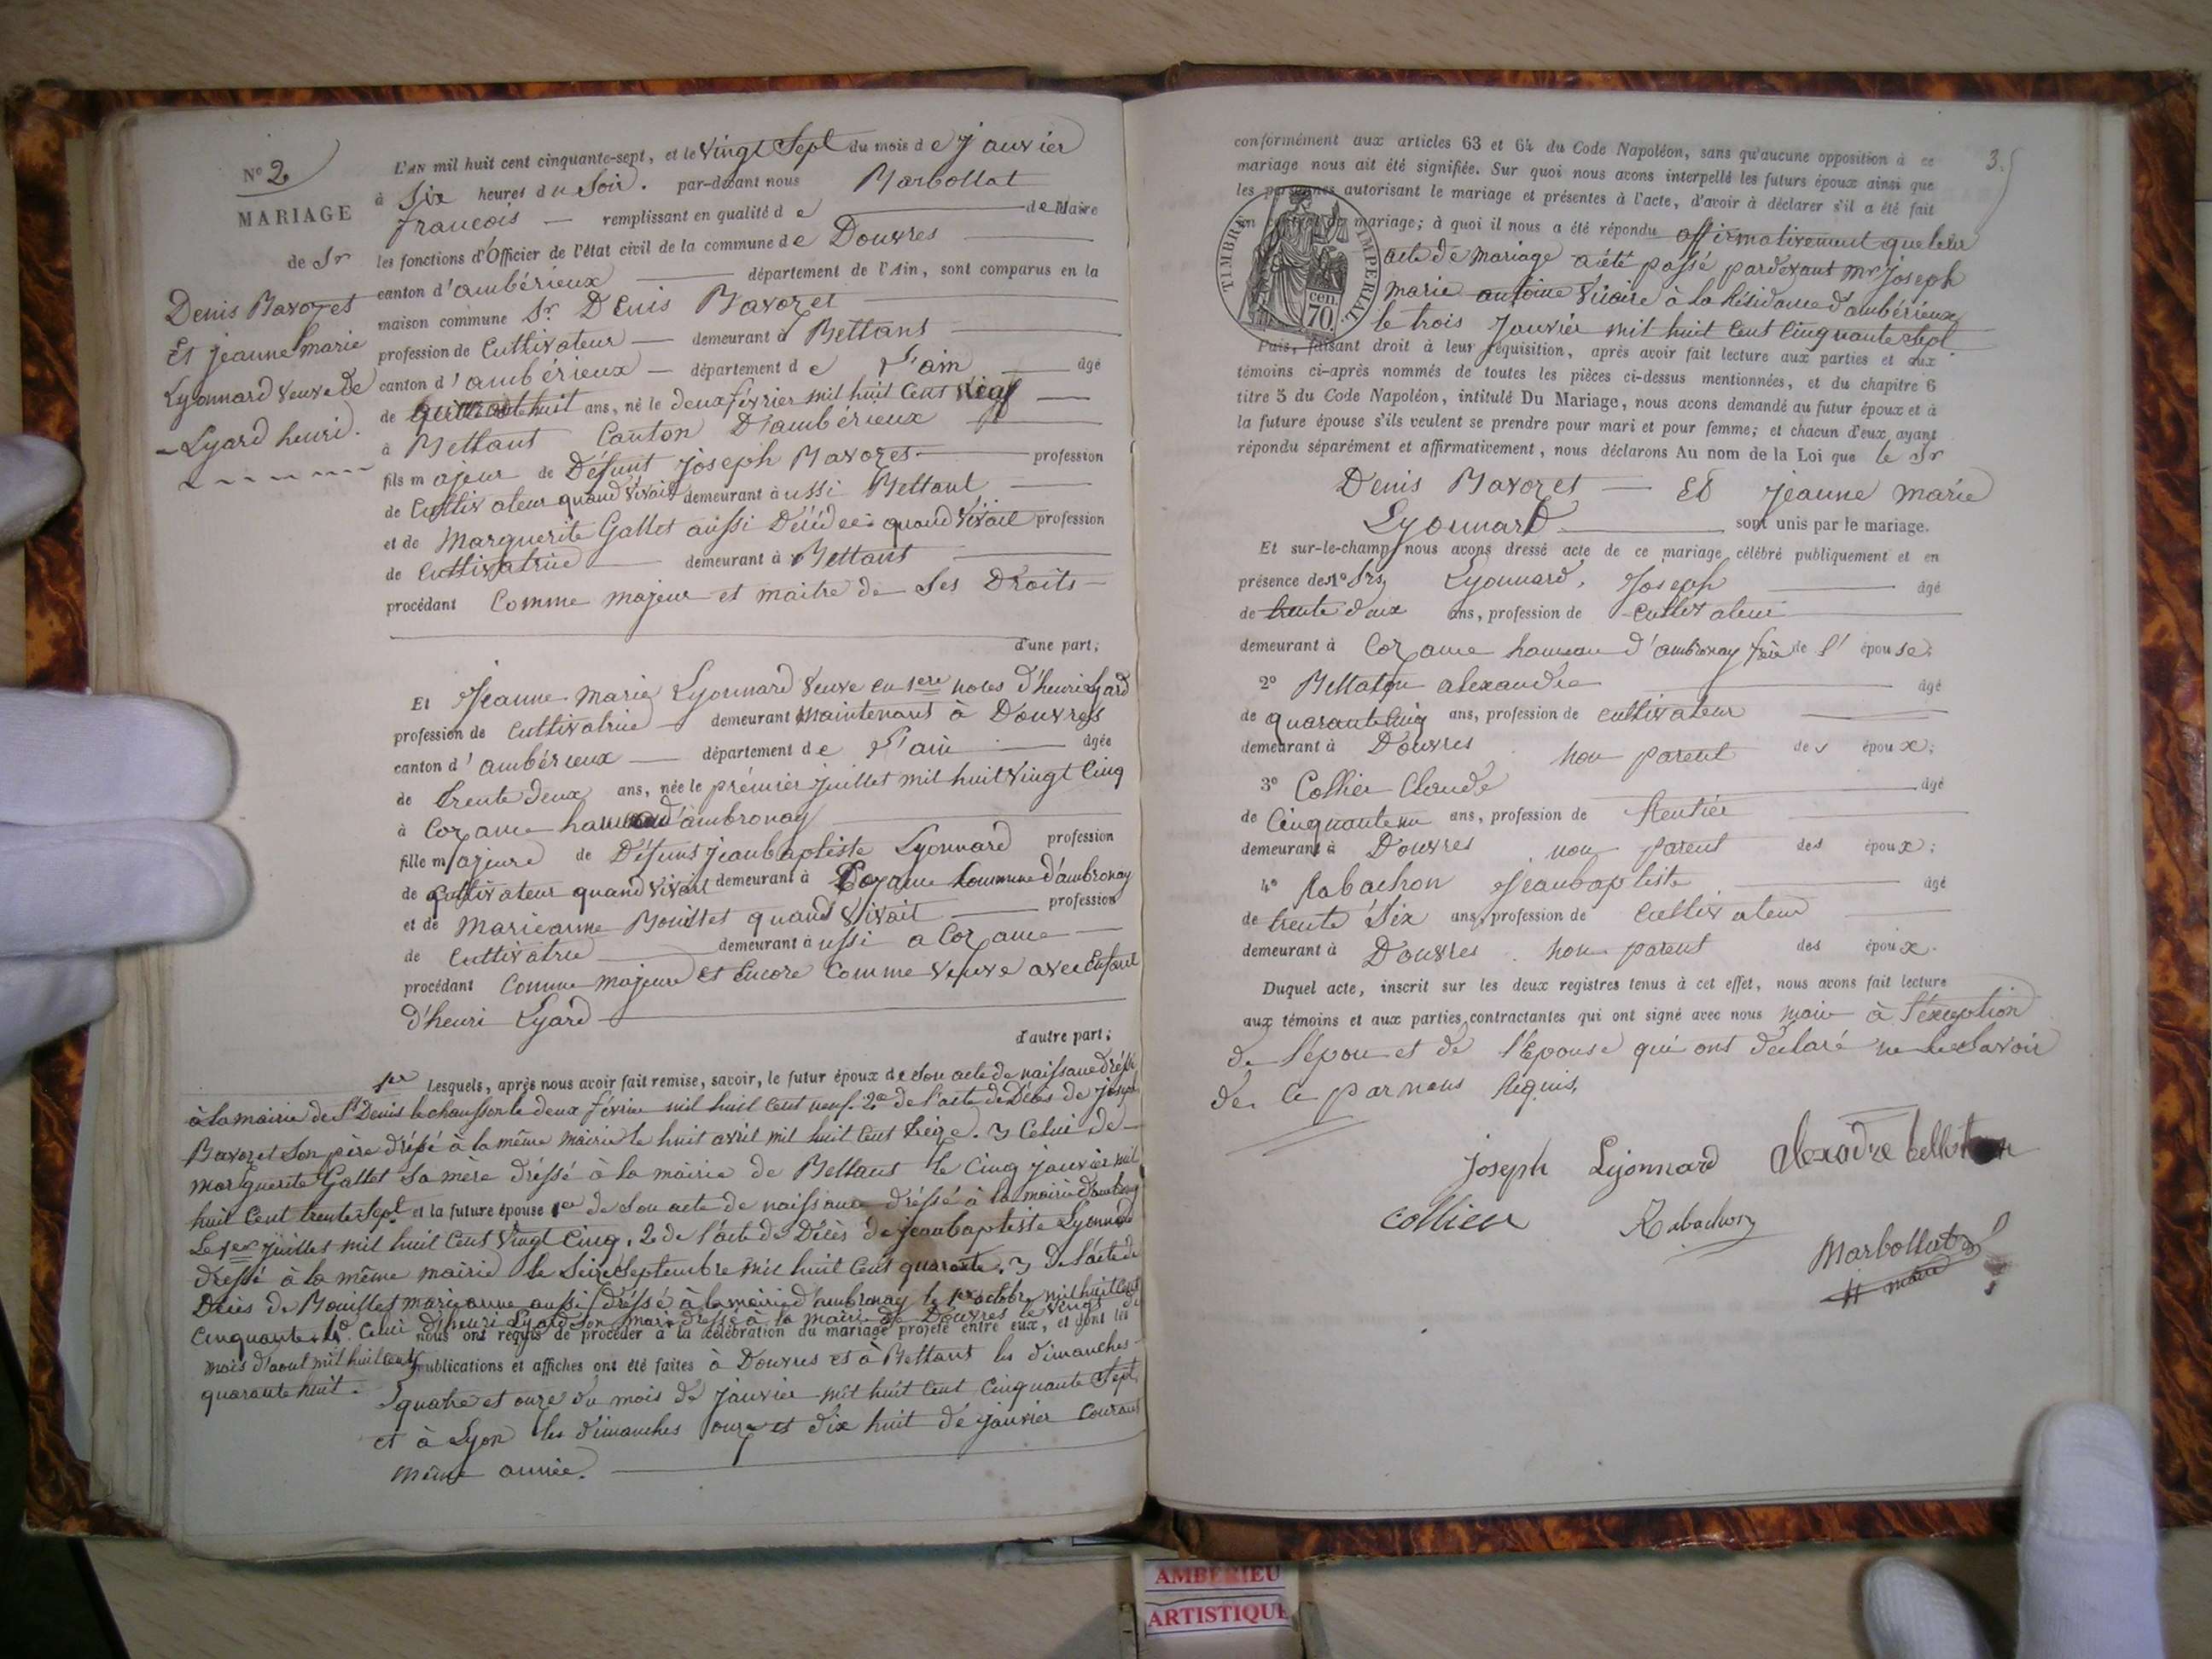 N° 2
MARIAGE
de Sr
Denis Ravozet
Et jeanne marie
Lyonnard veuve de
Lyard henri.
L'AN mil huit cent cinquante-sept, et le vingt Sept du mois de janvier
à Six heures du Soir. par-devant nous Marbollat
francois remplissant en qualité de de Maire
les fonctions d'Officier de l'état civil de la commune de Douvres
canton d'ambérieux département de l'Ain, sont comparus en la
maison commune Sr Denis Ravozet
profession de Cultivateur demeurant à Bettant
canton d'ambérieux département de l'ain âgé
de huit ans, né le deux février mil huit Cent neuf
à Bettant Canton D'ambérieux
fils majeur de Défunt joseph Ravozet profession
de Cultivateur quand vivait demeurant aussi Bettant
et de Marguerite Gallet aussi Décédée quand vivait profession
de Cultivatrice demeurant à Bettant
procédant Comme majeur et maitre de Ses Droits
d'une part;
Et Jeanne Marie Lyonnard Veuve en 1ere noces d'henri Lyard
profession de Cultivatrice demeurant maintenant à Douvres
canton d'ambérieux département de l'ain âgée
de trente deux ans, née le prémier juillet mil huit vingt Cinq
à Cozance hameau d'ambronay
fille majeure de Défunt jeanbaptiste Lyonnard profession
de Cultivateur quand vivait demeurant à Cozance Commune d'ambronay
et de Marieanne Bouillet quand vivait profession
de Cultivatrice demeurant aussi a Cozance
procédant Comme majeure et Encore Comme veuve avec Enfant
d'henri Lyard
d'autre part;
Lesquels, après nous avoir fait remise, savoir, le futur époux 1er de Son acte de naissance dréssé
à la mairie de St Denis le chausson le deux février mil huit Cent neuf. 2° de l'acte de Décés de joseph
Ravozet Son père dréssé à la même mairie le huit avril mil huit Cent treize. 3 Celui de
marguerite Gallet Sa mère dréssé à la mairie de Bettant le Cinq janvier mil
huit Cent trente Sept et la future épouse 1er de Son acte de naissance dréssé à la mairie d'ambronay
Le 1er juillet mil huit Cent Vingt Cinq. 2 de l'acte de Décès de jeanbaptiste Lyonnard
dréssé à la même mairie le Seize Septembre mil huit Cent quarante. 3 De l'acte de
Décès de Bouillet marieanne aussi dréssé à la mairie d'ambronay le 1er octobre mil huit Cent
Cinquante. 4° Celui d'henri Lyard Son mari dréssé à la mairie de Douvres le Vingt du
mois d'aout mil huit Cent
quarante huit.
nous ont requis de procéder à la célébration du mariage projeté entre eux, et dont les
publications et affiches ont été faites à Douvres et à Bettant les dimanches
quatre et onze du mois de janvier mil huit Cent Cinquante Sept
et à Lyon les dimanches onze et dix huit de janvier Courant
même année.
3.
conformément aux articles 63 et 64 du Code Napoléon, sans qu'aucune opposition à ce
mariage nous ait été signifiée. Sur quoi nous avons interpellé les futurs époux ainsi que
les personnes autorisant le mariage et présentes à l'acte, d'avoir à déclarer s'il a été fait
un contrat de mariage; à quoi il nous a été répondu affirmativement que leur
acte de mariage a été passé pardevant mr Joseph
marie antoine Vicaire à la Résidance d'ambérieux
le trois Janvier mil huit Cent Cinquante Sept
TIMBRE IMPERIAL
70 cen.
Puis, faisant droit à leur réquisition, après avoir fait lecture aux parties et aux
témoins ci-après nommés de toutes les pièces ci-dessus mentionnées, et du chapitre 6
titre 5 du Code Napoléon, intitulé Du Mariage, nous avons demandé au futur époux et à
la future épouse s'ils veulent se prendre pour mari et pour femme; et chacun d'eux ayant
répondu séparément et affirmativement, nous déclarons Au nom de la Loi que le Sr
Denis Ravozet Et Jeanne Marie
Lyonnard sont unis par le mariage.
Et sur-le-champ nous avons dressé acte de ce mariage célébré publiquement et en
présence des 1° Srs Lyonnard, Joseph âgé
de trente deux ans, profession de Cultivateur
demeurant à Cozance hameau d'ambronay frère de l'épouse;
2° Bellaton alexandre âgé
de quarante Cinq ans, profession de cultivateur
demeurant à Douvres non parent des époux;
3° Collier Claude âgé
de Cinquante un ans, profession de Rentier
demeurant à Douvres non parent des époux;
4° Rabachon Jeanbaptiste âgé
de trente Six ans, profession de Cultivateur
demeurant à Douvres non parent des époux.
Duquel acte, inscrit sur les deux registres tenus à cet effet, nous avons fait lecture
aux témoins et aux parties contractantes qui ont signé avec nous maire à l'éxeption
de l'époux et de l'Epouse qui ont déclaré ne le Savoir
de ce par nous Réquis.
joseph Lyonnard
Collier
Rabachon
Marbollat
maire
AMBERIEU
ARTISTIQUE